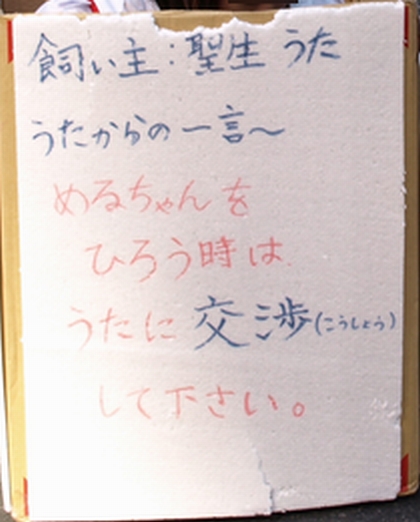 飼い主:聖生 うた
うたからの一言〜
めるちゃんを
ひろう時は
うたに交渉(こうしょう)
して下さい。